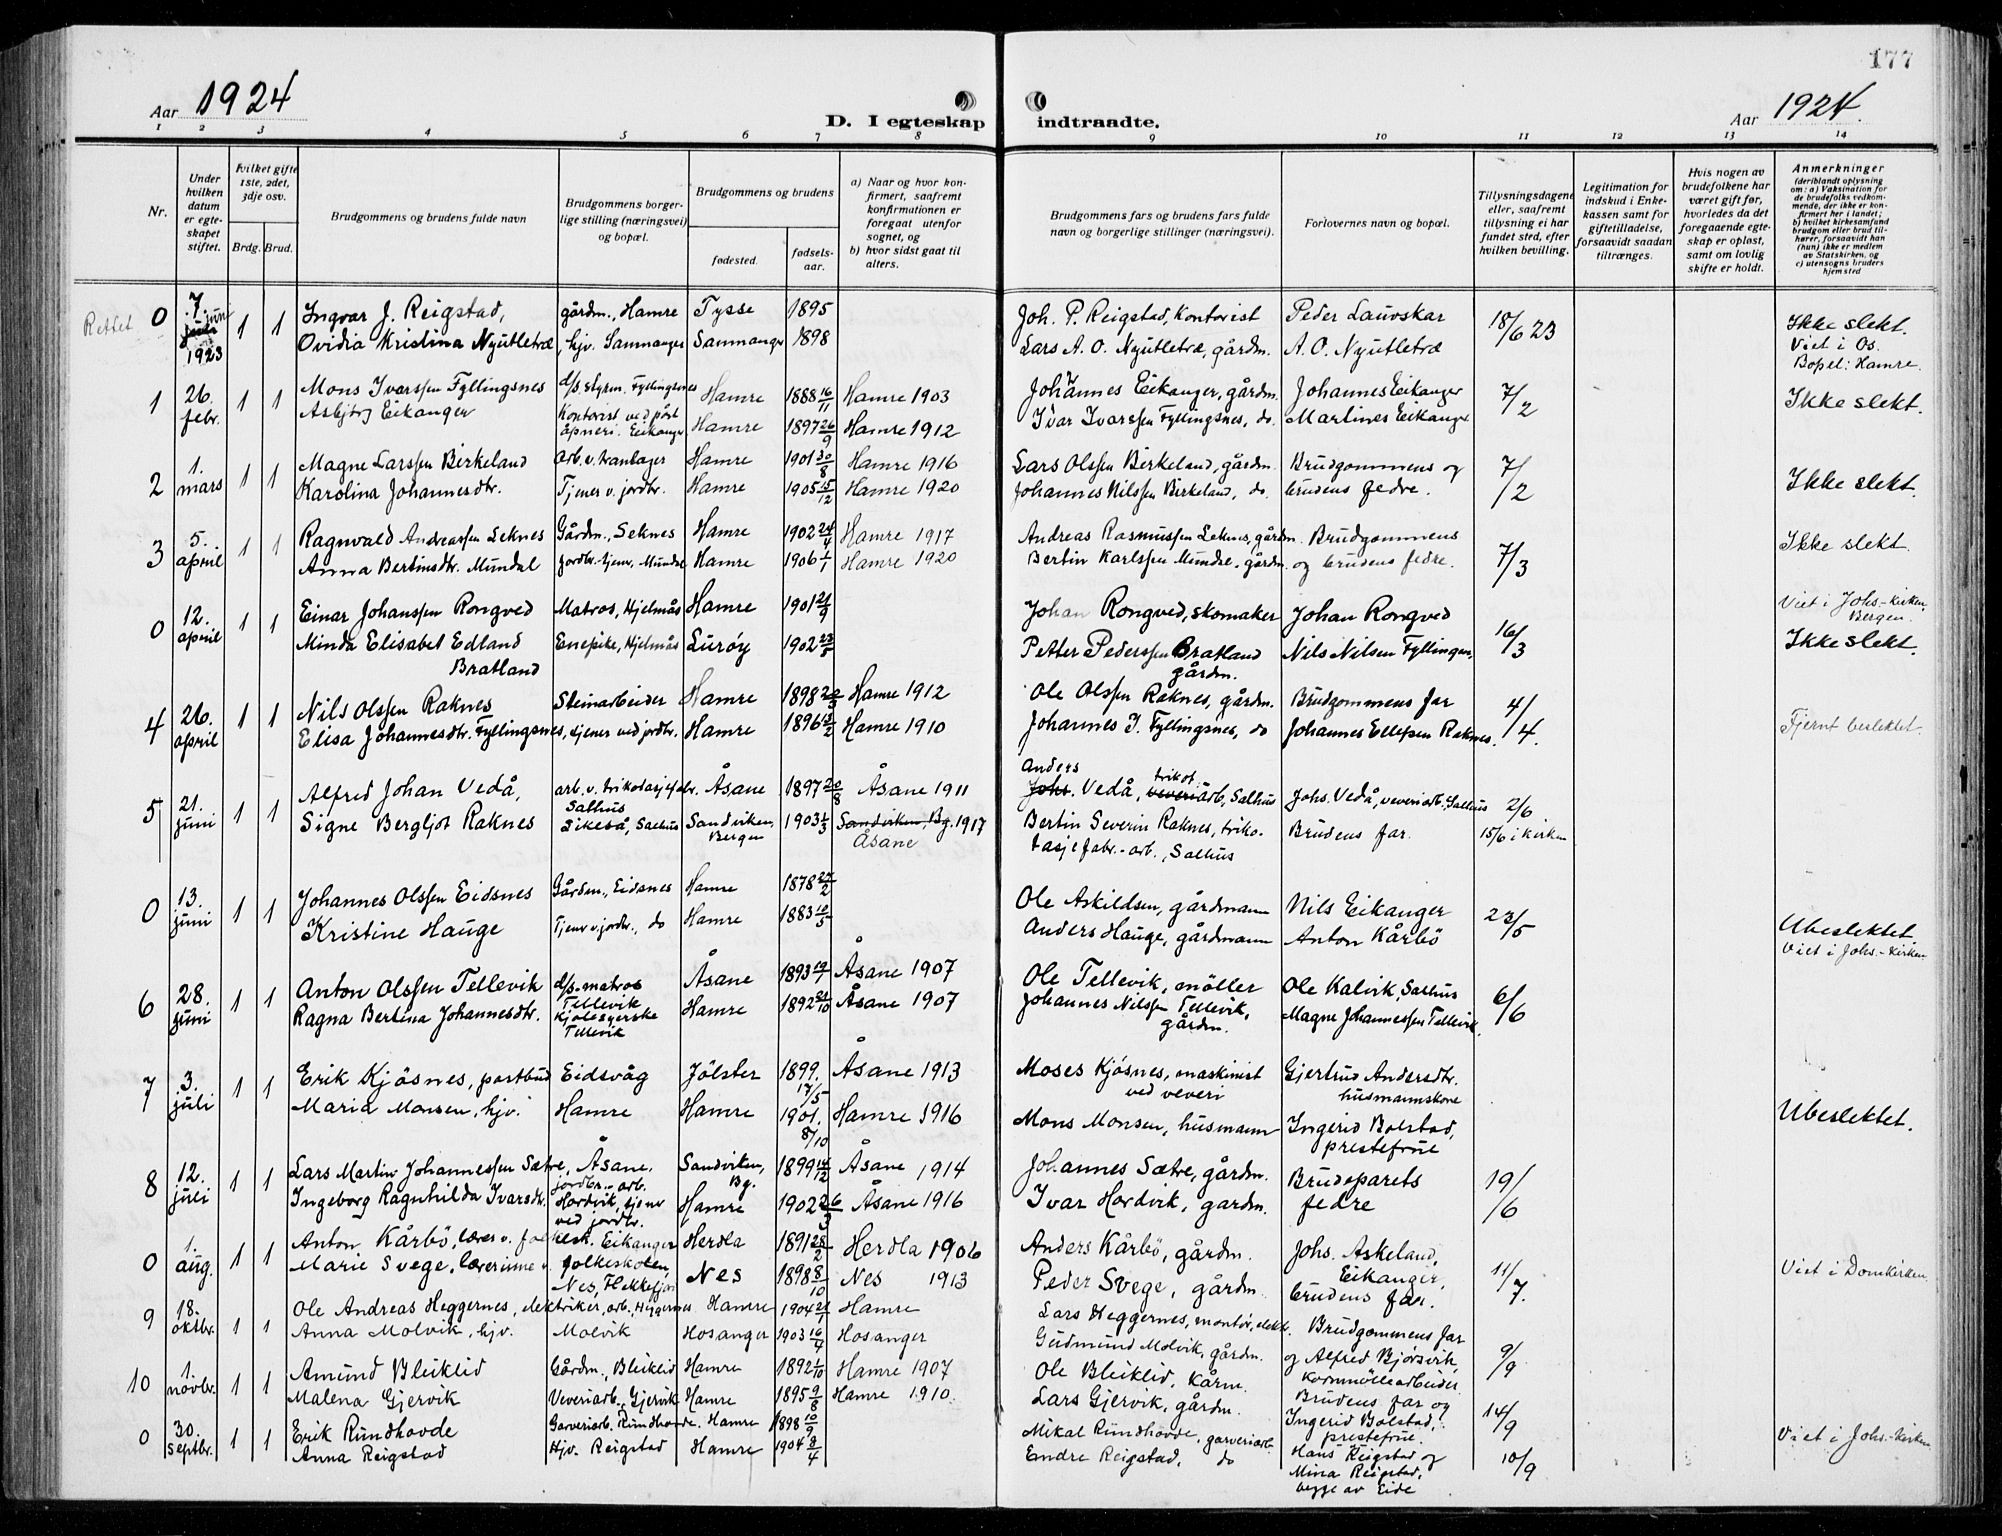 177
Aar 1924
D. I egteskap indtraadte.
Aar 1924.
1 2 3 4 5 6 7 8 9 10 11 12 13 14
Nr.
Under hvilken datum er egteskapet stiftet.
Hvilket gifte 1ste, 2det, 3dje osv.
Brdg. Brud.
Brudgommens og brudens fulde navn
Brudgommens borgerlige stilling (næringsvei) og bopæl.
Brudgommens og brudens
fødested.
fødselsaar.
a) Naar og hvor konfirmert, saafremt konfirmationen er foregaat utenfor sognet, og
b) hvor sidst gaat til alters.
Brudgommens fars og brudens fars fulde navn og borgerlige stillinger (næringsvei).
Forlovernes navn og bopæl.
Tillysningsdagene eller, saafremt tillysning ei har fundet sted, efter hvilken bevilling.
Legitimation for indskud i Enkekassen samt for giftetilladelse, forsaavidt saadan tiltrænges.
Hvis nogen av brudefolkene har været gift før, hvorledes da det foregaaende egteskap er opløst, samt om lovlig skifte er holdt.
Anmerkninger (deriblandt oplysning om: a) Vaksination for de brudefolks vedkommende, der ikke er konfirmert her i landet; b) hvilket kirkesamfund brudgom eller brud tilhører, forsaavidt han (hun) ikke er medlem av Statskirken, og c) utensogns bruders hjemsted
Rettet 0 7. juni juli 1923 1 1 Ingvar J. Reigstad, gårdm., Hamre Tysse 1895 Joh. P. Reigstad, Kontorist Peder Lauvskar 18/6 23 Ikke slekt.
Ovidia Kristina Nyutletræ, hjv. Samnanger Samnanger 1898 Lars A. O. Nyutletræ, gårdm. A. O. Nyutletræ Viet i Os.
Bopel: Hamre.
1 26. febr. 1 1 Mons Ivarssen Fyllingsnes d/s styrm. Fyllingsnes Hamre 1888 16/11 Hamre 1903 Johannes Eikanger, gårdm. Johannes Eikanger 7/2 Ikke slekt.
Asbjørg Eikanger Kontorist ved post åpneri. Eikanger Hamre 1897 26/9 Hamre 1912 Ivar Ivarssen Fyllingsnes, do. Martines Eikanger
2 1. mars 1 1 Magne Larssen Birkeland Arb. v. tranlager Hamre 1901 30/8 Hamre 1916 Lars Olssen Birkeland, gårdm. Brudgommens og 7/2 Ikke slekt.
Karolina Johannesdtr. Tjener v. jordbr. Hamre 1905 15/12 Hamre 1920 Johannes Nilssen Birkeland, do. brudens fedre.
3 5. april 1 1 Ragnvald Andreassen Leknes Gårdm., Seknes Hamre 1902 24/4 Hamre 1917 Andreas Rasmussen Leknes, gårdm. Brudgommens 7/3 Ikke slekt.
Anna Bertinsdtr. Mundal jordbr. tjener, Mundal Hamre 1906 1/1 Hamre 1920 Bertin Karlssen Mundal, gårdm. og brudens fedre.
0 12. april 1 1 Einar Johanssen Rongved Matros, Hjelmås Hamre 1901 21/9 Johan Rongved, skomaker Johan Rongved 16/3 Viet i Johs.-kirken, Bergen.
Minda Elisabet Edland Bratland Enepike, Hjelmås Lurøy 1902 23/5 Petter Pederssen Bratland gårdm. Nils Nilsen Fyllingen. Ikke slekt.
4 26. april 1 1 Nils Olssen Raknes Steinarbeider Hamre 1898 Hamre 1912 Ole Olssen Raknes, gårdm. Brudgommens far 4/4. Fjernt beslektet.
Elisa Johannesdtr. Fyllingsnes, tjener ved jordbr. Hamre 1896 13/2 Hamre 1910 Johannes I. Fyllingsnes, do Johannes Ellefsen Raknes.
5 21. juni 1 1 Alfred Johan Vedå, arb. v. trikotasjefabr. Salhus Åsane 1897 20/8 Åsane 1911 Anders Johs. Vedå, trikot. veveriarb, Salhus Johs. Vedå, veveriarb. Salhus 2/6
Signe Bergljot Raknes Likeså, Salhus Sandviken, Bergen 1903 1/3 Sandviken, Bg. 1917 Åsane Bertin Severin Raknes, trikotasjefabr.-arb., Salhus Brudens far. 15/6 i kirken
0 13. juni 1 1 Johannes Olssen Eidsnes Gårdm., Eidsnes Hamre 1878 27/2 Ole Askildsen, gårdmann Nils Eikanger 23/5 Ubeslektet
Kristine Hauge Tjener v. jordbr., do Hamre 1883 10/5 Anders Hauge, gårdmann Anton Kårbö Viet i Johs.-kirken.
6 28. juni 1 1 Anton Olssen Tellevik d/s-matros Tellevik Åsane 1893 Åsane 1907 Ole Tellevik, møller Ole Kalvik, Salhus 6/6
Ragna Bertina Johannesdtr. Kjolesyerske Tellevik Hamre 1892 21/10 Åsane 1907 Johannes Nilssen Tellevik, gårdm. Magne Johannessen Tellevik.
7 3. juli 1 1 Erik Kjösnes, postbud Eidsvåg Jölster 1899. 17/5 Åsane 1913 Moses Kjösnes, maskinist ved veveri Gjertrud Andersdtr. husmannskone
Maria Monsen, hjv. Hamre Hamre 1901. 8/10 Hamre 1916 Mons Monsen, husmann Ingerid Bolstad, prestefrue Ubeslektet.
8 12. juli 1 1 Lars Martin Johannessen Sætre, Åsane. jordbr.-arb. Sandviken, Bg. 1899 14/12 Åsane 1914 Johannes Sætre, gårdm. Brudeparets 19/6
Ingeborg Ragnhilda Ivarsdtr. Hordvik, tjener ved jordbr. Hamre 1902 26/3 Åsane 1916 Ivar Hordvik, gardm. fedre
0 1. aug. 1 1 Anton Kårbö, lærer v. folkesk. Eikanger Herdla 1891 28/2 Herdla 1906 Anders Kårbö, gårdm. Johs. Askeland, Eikanger, 11/7. Viet i Domkirken.
Marie Svege, lærerinne v. folkeskolen, Nes, Flekkefjord Nes 1898 8/10 Nes 1913 Peder Svege, gårdm. brudens far.
9 18. oktbr. 1 1 Ole Andreas Heggernes, elektriker, arb. Heggernes Hamre 1904 21/1 Hamre Lars Heggernes, montör, elektr. Brudgommens far 9/9
Anna Molvik, hjv. Molvik Hosanger 1903 16/4 Hosanger Gudmund Molvik, gårdm. og Alfred Bjørsvik, Kornmöllearbeider.
10 1. novbr. 1 1 Amund Bleiklid Gårdm., Bleiklid Hamre 1892 1/10 Hamre 1907 Ole Bleiklid, kårm. Brudens far og 14/9
Malena Gjervik Veveriarb., Gjervik Hamre 1895 9/8 Hamre 1910. Lars Gjervik, gårdm. Ingerid Bolstad, prestefrue.
0 30. septbr. 1 1 Erik Rundhovde Garveriarb. Rundhovde. Hamre 1898 10/9 Mikal Rundhovde, garveriarb. Hans Reigstad og 10/9 Viet i Johs.-kirken
Anna Reigstad Hjv. Reigstad Hamre 1904 8/4 Endre Reigstad, do Mina Reigstad, begge av Eide